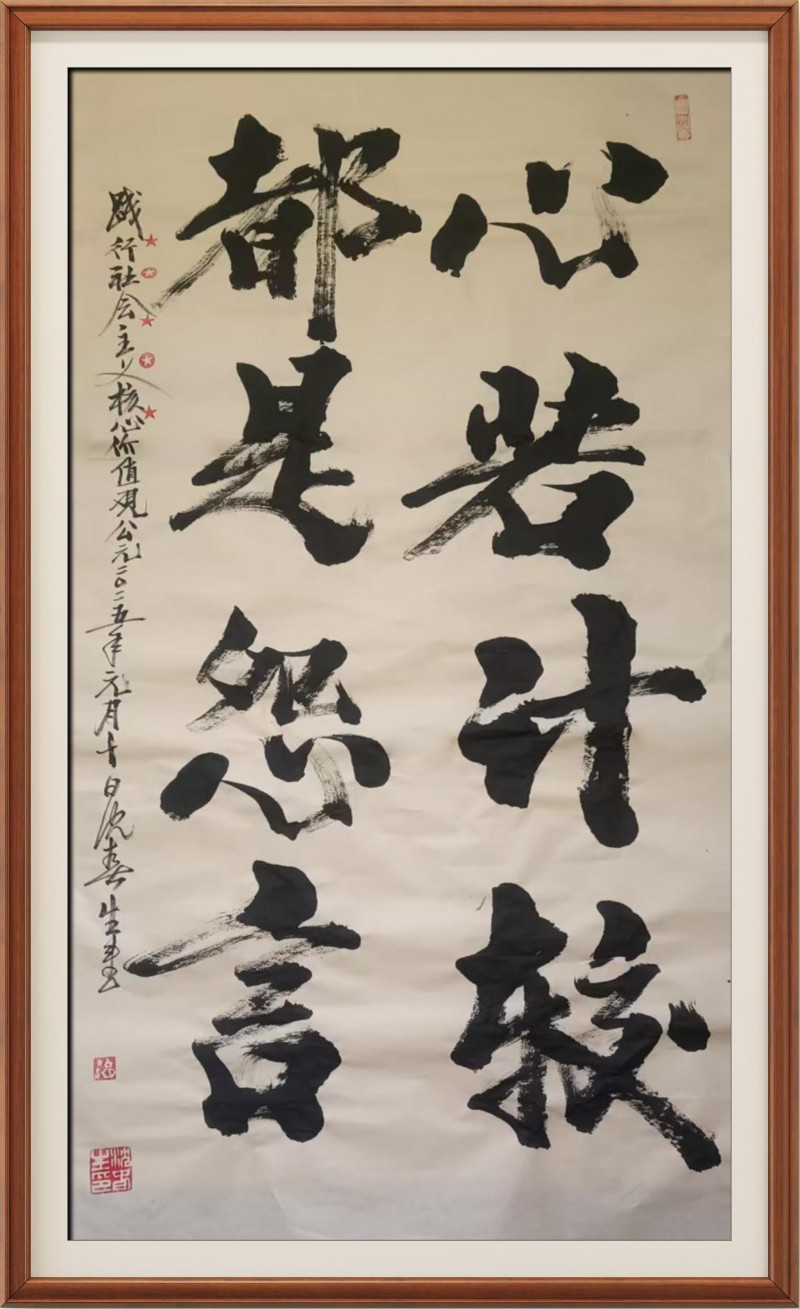 心若计较
都是怨言
践行社会主义核心价值观公元二〇二五年元月十日沈春生书